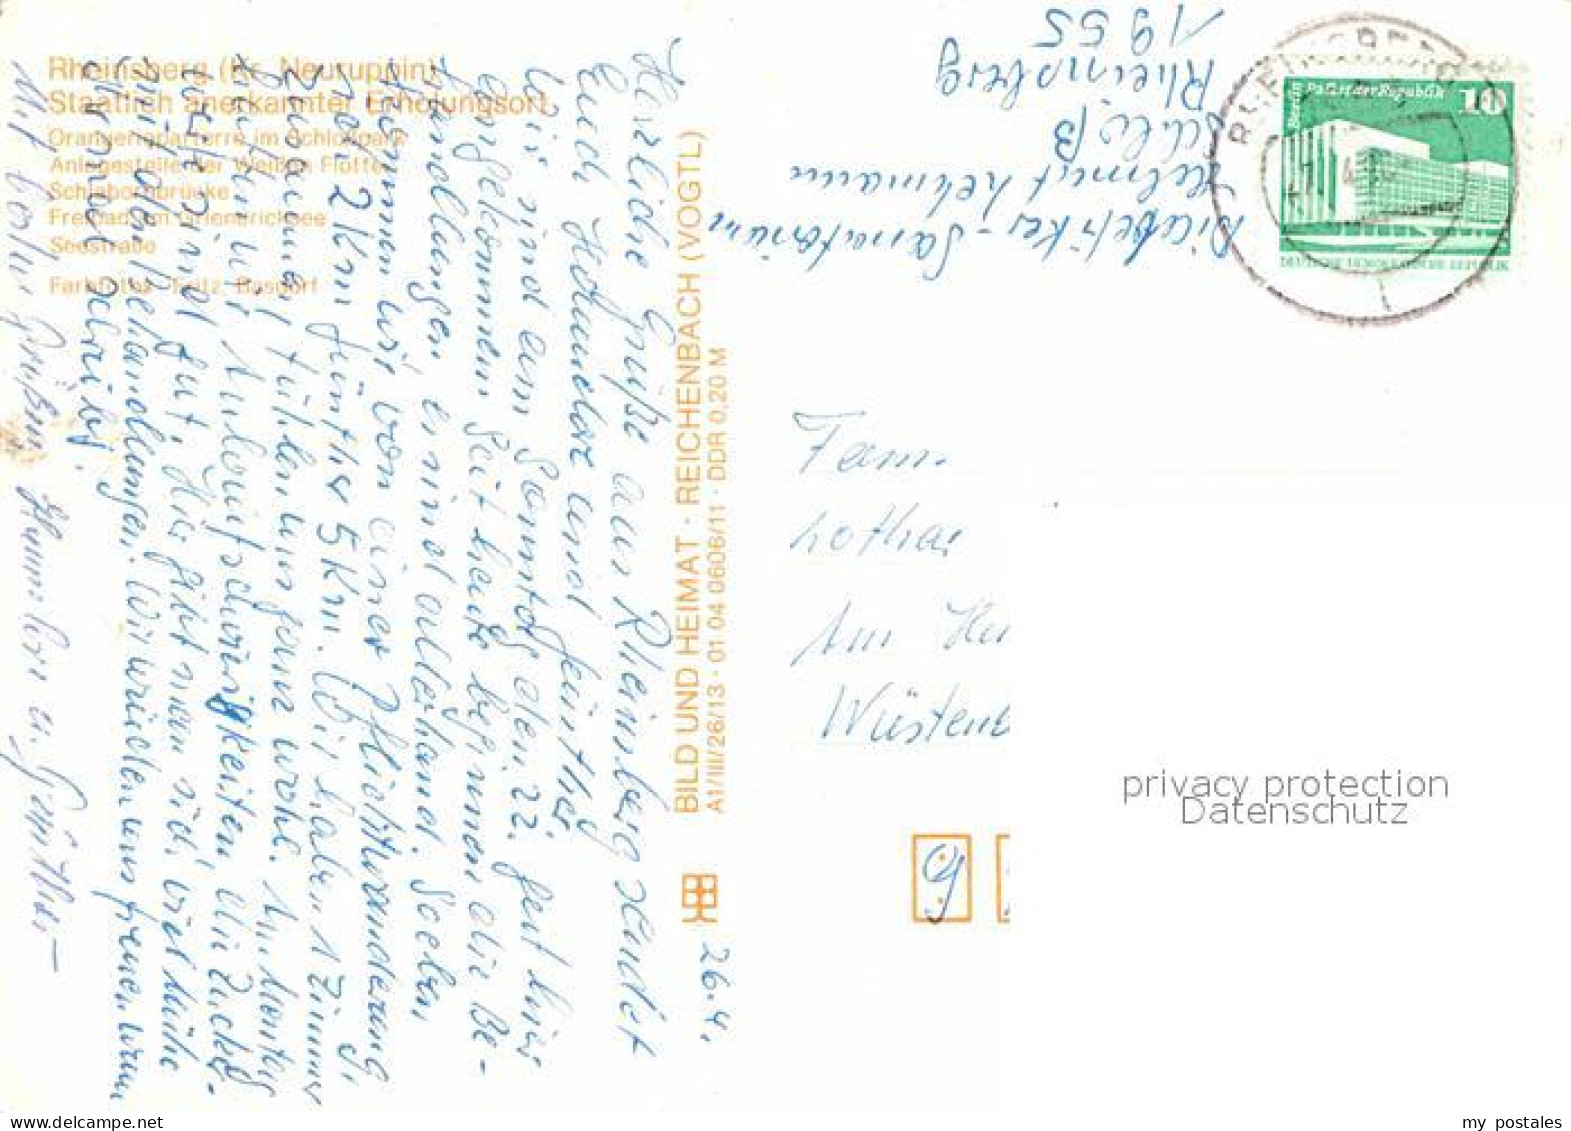 Rheinsberg (Kr. Neuruppin)
Staatlich anerkannter Erholungsort
Orangerieparterre im Schloßpark
Anlegestelle der Weißen Flotte
Schlabornbrücke
Freibad am Grienericksee
Seestraße
Farbfotos: Fritz, Basdorf
BILD UND HEIMAT · REICHENBACH (VOGTL)
A1/III/26/13 · 01 04 0606/11 · DDR 0,20 M
26.4.
Herzliche Grüße aus Rheinsberg sendet
Euch Hannelore und Günther
Wir sind am Samstag den 22. gut hier
angekommen. Seit heute beginnen die Be-
handlungen, es sind allerhand. Soeben
kommen wir von einer Pflichtwanderung
2 km Günther 5 km. Wir haben 1 Zimmer
zusammen, fühlen uns ganz wohl. Am Montag
hatten wir Anlaufschwierigkeiten. Die Zucker-
sind gut. Hier gibt man sich viel Mühe
mit den Behandlungen. Wir würden uns freuen wenn
Ihr mal schreibt.
Mit besten Grüßen Hannelore u. Günther
Diabetiker-Sanatorium
Helmut Lehmann
Schloß
Rheinsberg
1955
RHEINSBERG
Berlin Palast der Republik
10
DEUTSCHE DEMOKRATISCHE REPUBLIK
Fam.
Lothar
Am
Wüstenb
9
privacy protection
Datenschutz
my_postales